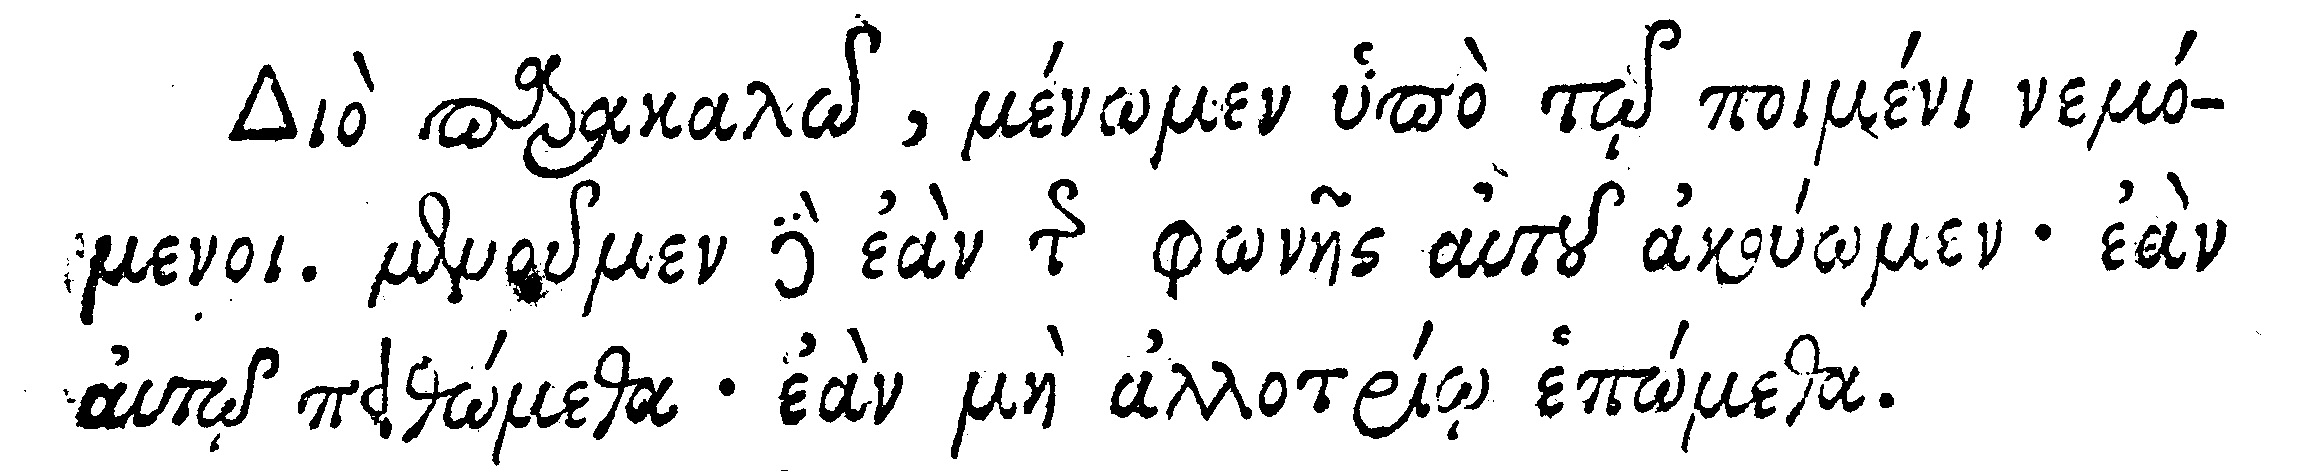 Διὸ παρακαλῶ, μένωμεν ὑπὸ τῷ ποιμένι νεμό-
μενοι. μενοῦμεν δὲ ἐὰν τῆς φωνῆς αὐτοῦ ἀκούωμεν· ἐὰν
αὐτῷ πειθώμεθα· ἐὰν μὴ ἀλλοτρίῳ ἑπώμεθα.